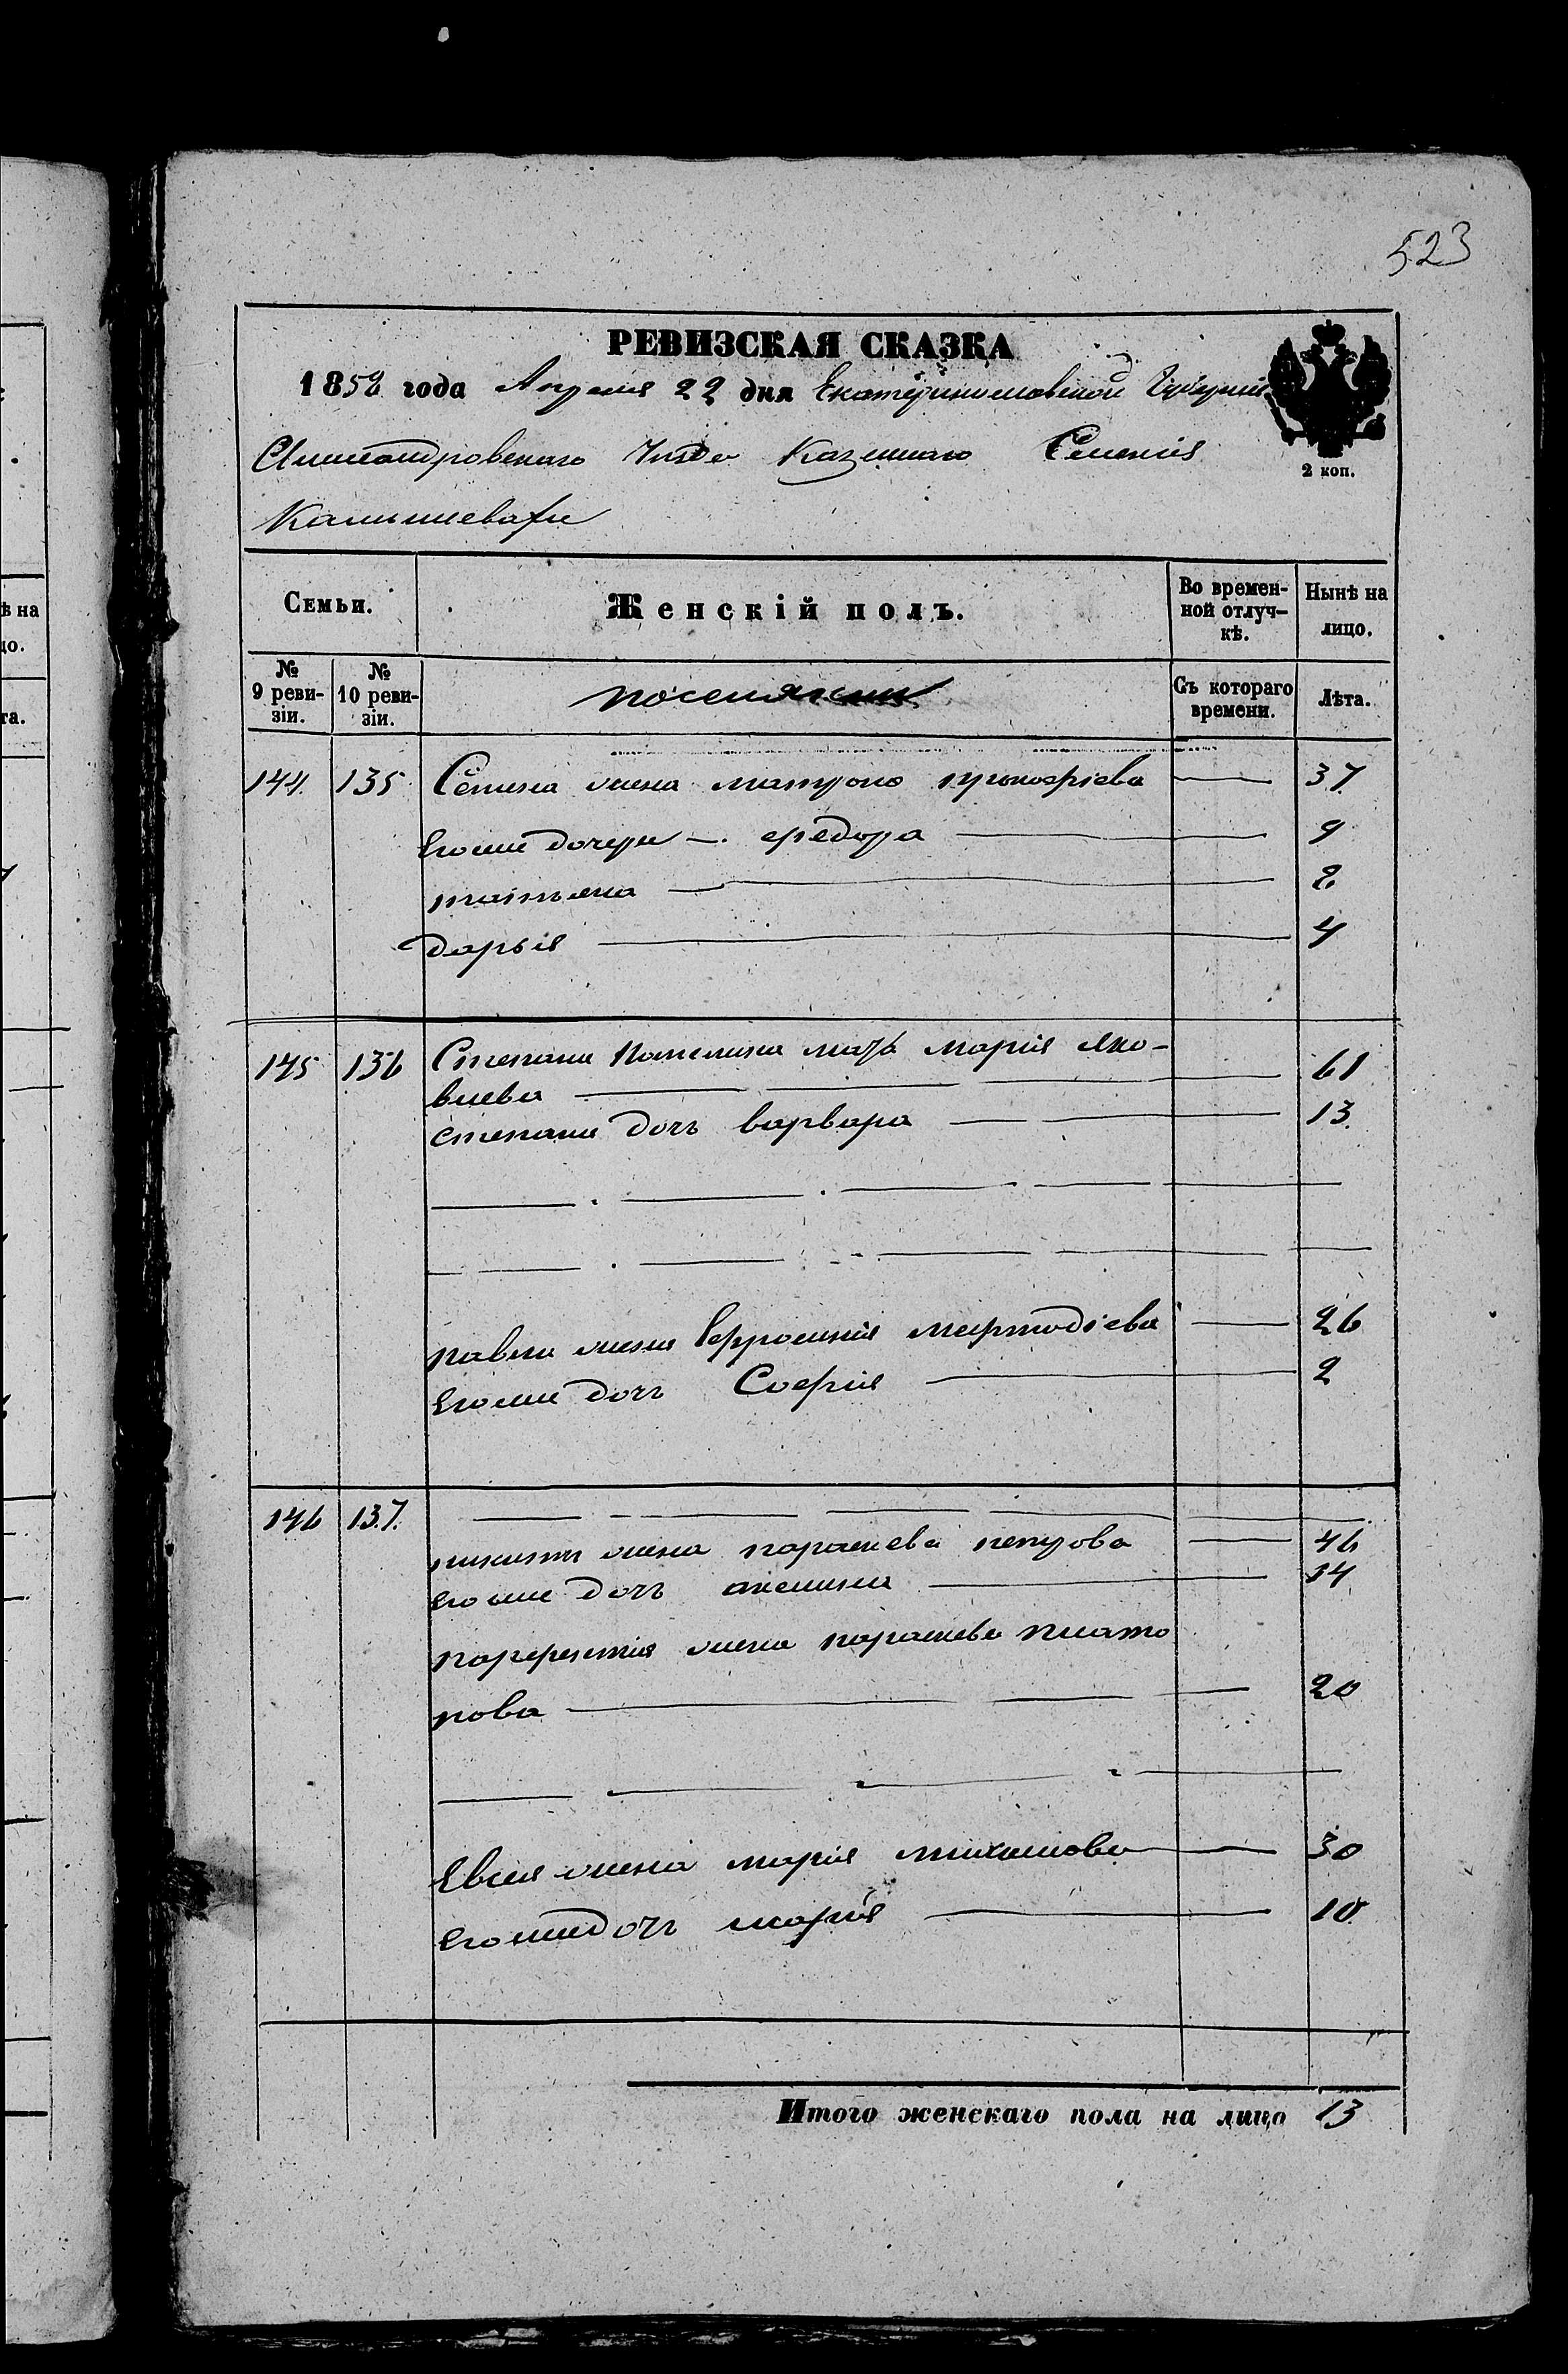 523
РЕВИЗСКАЯ СКАЗКА
1858 года Апреля 22 дня Екатеринославской Губернии
Александровскаго Уѣзда Казеннаго Селения
Камышевахи
2 коп.
Семьи.
Женскій полъ.
Во времен-
ной отлуч-
кѣ.
Нынѣ на
лицо.
№
9 реви-
зіи.
№
10 реви-
зіи.
поселянин
Съ котораго
времени.
Лѣта.
144. 135 Семена жена матрона прокофіева 37
Егоже дочери федора 9
татьяна 8
дарья 4
145 136 Степана мать мария яко-
влева 61
степана дочь варвара 13
павла жена Ефросиния мефтодіева 26
Егоже дочь София 2
146 137. никиты жена параскева петрова 46
егоже дочь аксиния 14
парфентия жена параскева плато
нова 20
Евсея жена мария михаилова 30
егоже дочь мария 10
Итого женскаго пола на лицо 13
ѣ на
цо.
та.